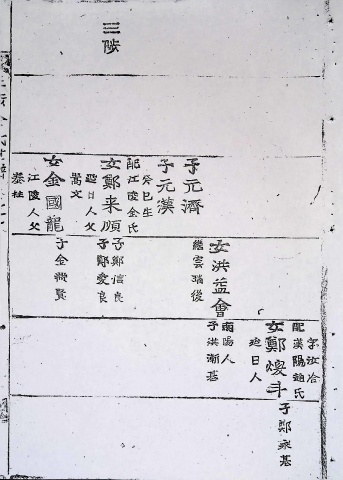 三陟
子元濟
子元漢
癸巳生
配江陵金氏
女鄭來順
迎日人父
嵩文
女金國龍
江陵人父
泰柱
繼雲瑞後
子鄭信良
子鄭愛良
女洪益會
南陽人
子洪漸基
字汝洽
配漢陽趙氏
女鄭煥斗
迎日人
子鄭永基